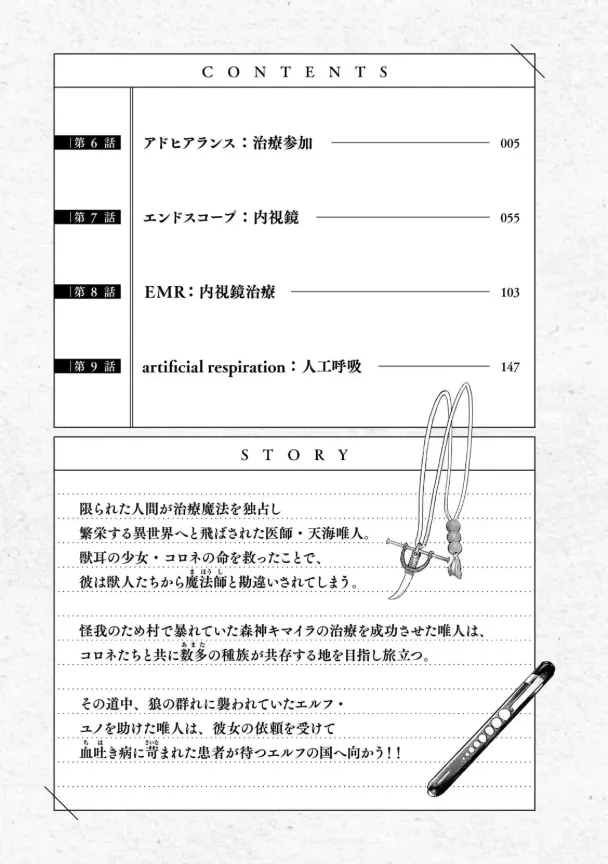 CONTENTS
第6話 アドヒアランス：治療参加 005
第7話 エンドスコープ：内視鏡 055
第8話 EMR：内視鏡治療 103
第9話 artificial respiration：人工呼吸 147
STORY
限られた人間が治療魔法を独占し
繁栄する異世界へと飛ばされた医師・天海唯人。
獣耳の少女・コロネの命を救ったことで、
彼は獣人たちから魔法師と勘違いされてしまう。
怪我のため村で暴れていた森神キマイラの治療を成功させた唯人は、
コロネたちと共に数多の種族が共存する地を目指し旅立つ。
その道中、狼の群れに襲われていたエルフ・
ユノを助けた唯人は、彼女の依頼を受けて
血吐き病に苛まれた患者が待つエルフの国へ向かう！！